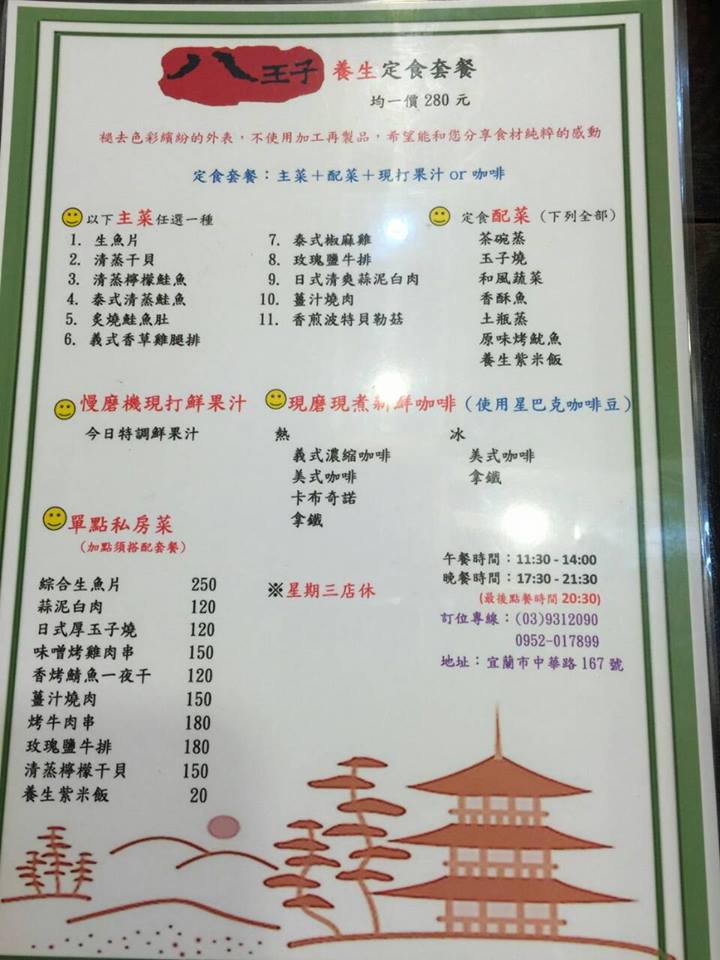 八王子 養生定食套餐
均一價 280 元
褪去色彩繽紛的外表，不使用加工再製品，希望能和您分享食材純粹的感動
定食套餐：主菜＋配菜＋現打果汁 or 咖啡
以下主菜任選一種
1. 生魚片
2. 清蒸干貝
3. 清蒸檸檬鮭魚
4. 泰式清蒸鮭魚
5. 炙燒鮭魚肚
6. 義式香草雞腿排
7. 泰式椒麻雞
8. 玫瑰鹽牛排
9. 日式清爽蒜泥白肉
10. 薑汁燒肉
11. 香煎波特貝勒菇
定食配菜（下列全部）
茶碗蒸
玉子燒
和風蔬菜
香酥魚
土瓶蒸
原味烤魷魚
養生紫米飯
慢磨機現打鮮果汁
今日特調鮮果汁
現磨現煮新鮮咖啡（使用星巴克咖啡豆）
熱
義式濃縮咖啡
美式咖啡
卡布奇諾
拿鐵
冰
美式咖啡
拿鐵
單點私房菜
（加點須搭配套餐）
綜合生魚片 250
蒜泥白肉 120
日式厚玉子燒 120
味噌烤雞肉串 150
香烤鯖魚一夜干 120
薑汁燒肉 150
烤牛肉串 180
玫瑰鹽牛排 180
清蒸檸檬干貝 150
養生紫米飯 20
※星期三店休
午餐時間：11:30 - 14:00
晚餐時間：17:30 - 21:30
(最後點餐時間 20:30)
訂位專線：(03)9312090
0952-017899
地址：宜蘭市中華路 167 號